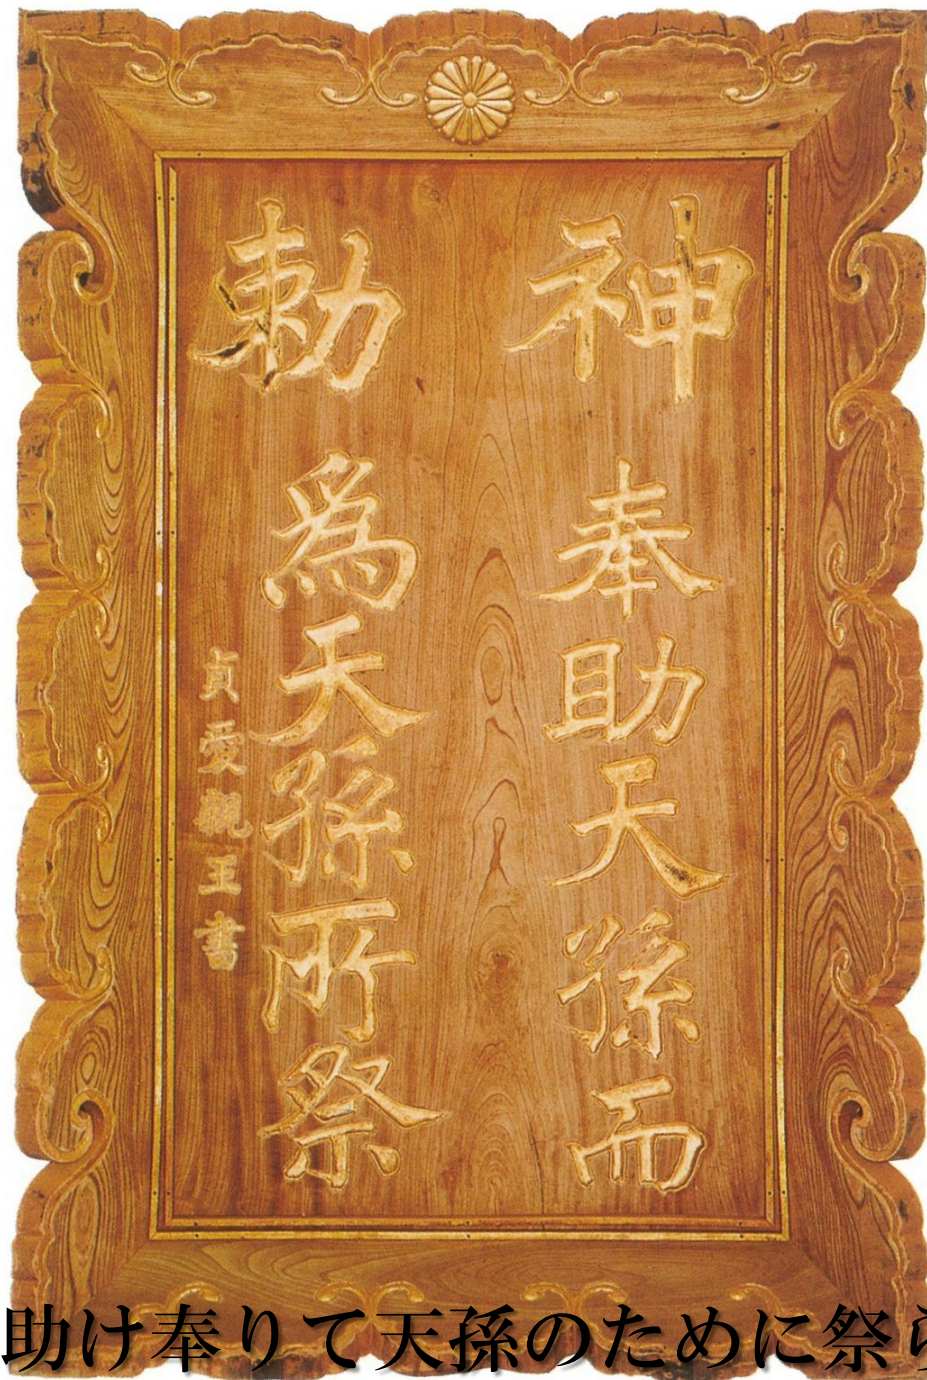 神勅
奉助天孫而
為天孫所祭
貞愛親王書
助け奉りて天孫のために祭ら